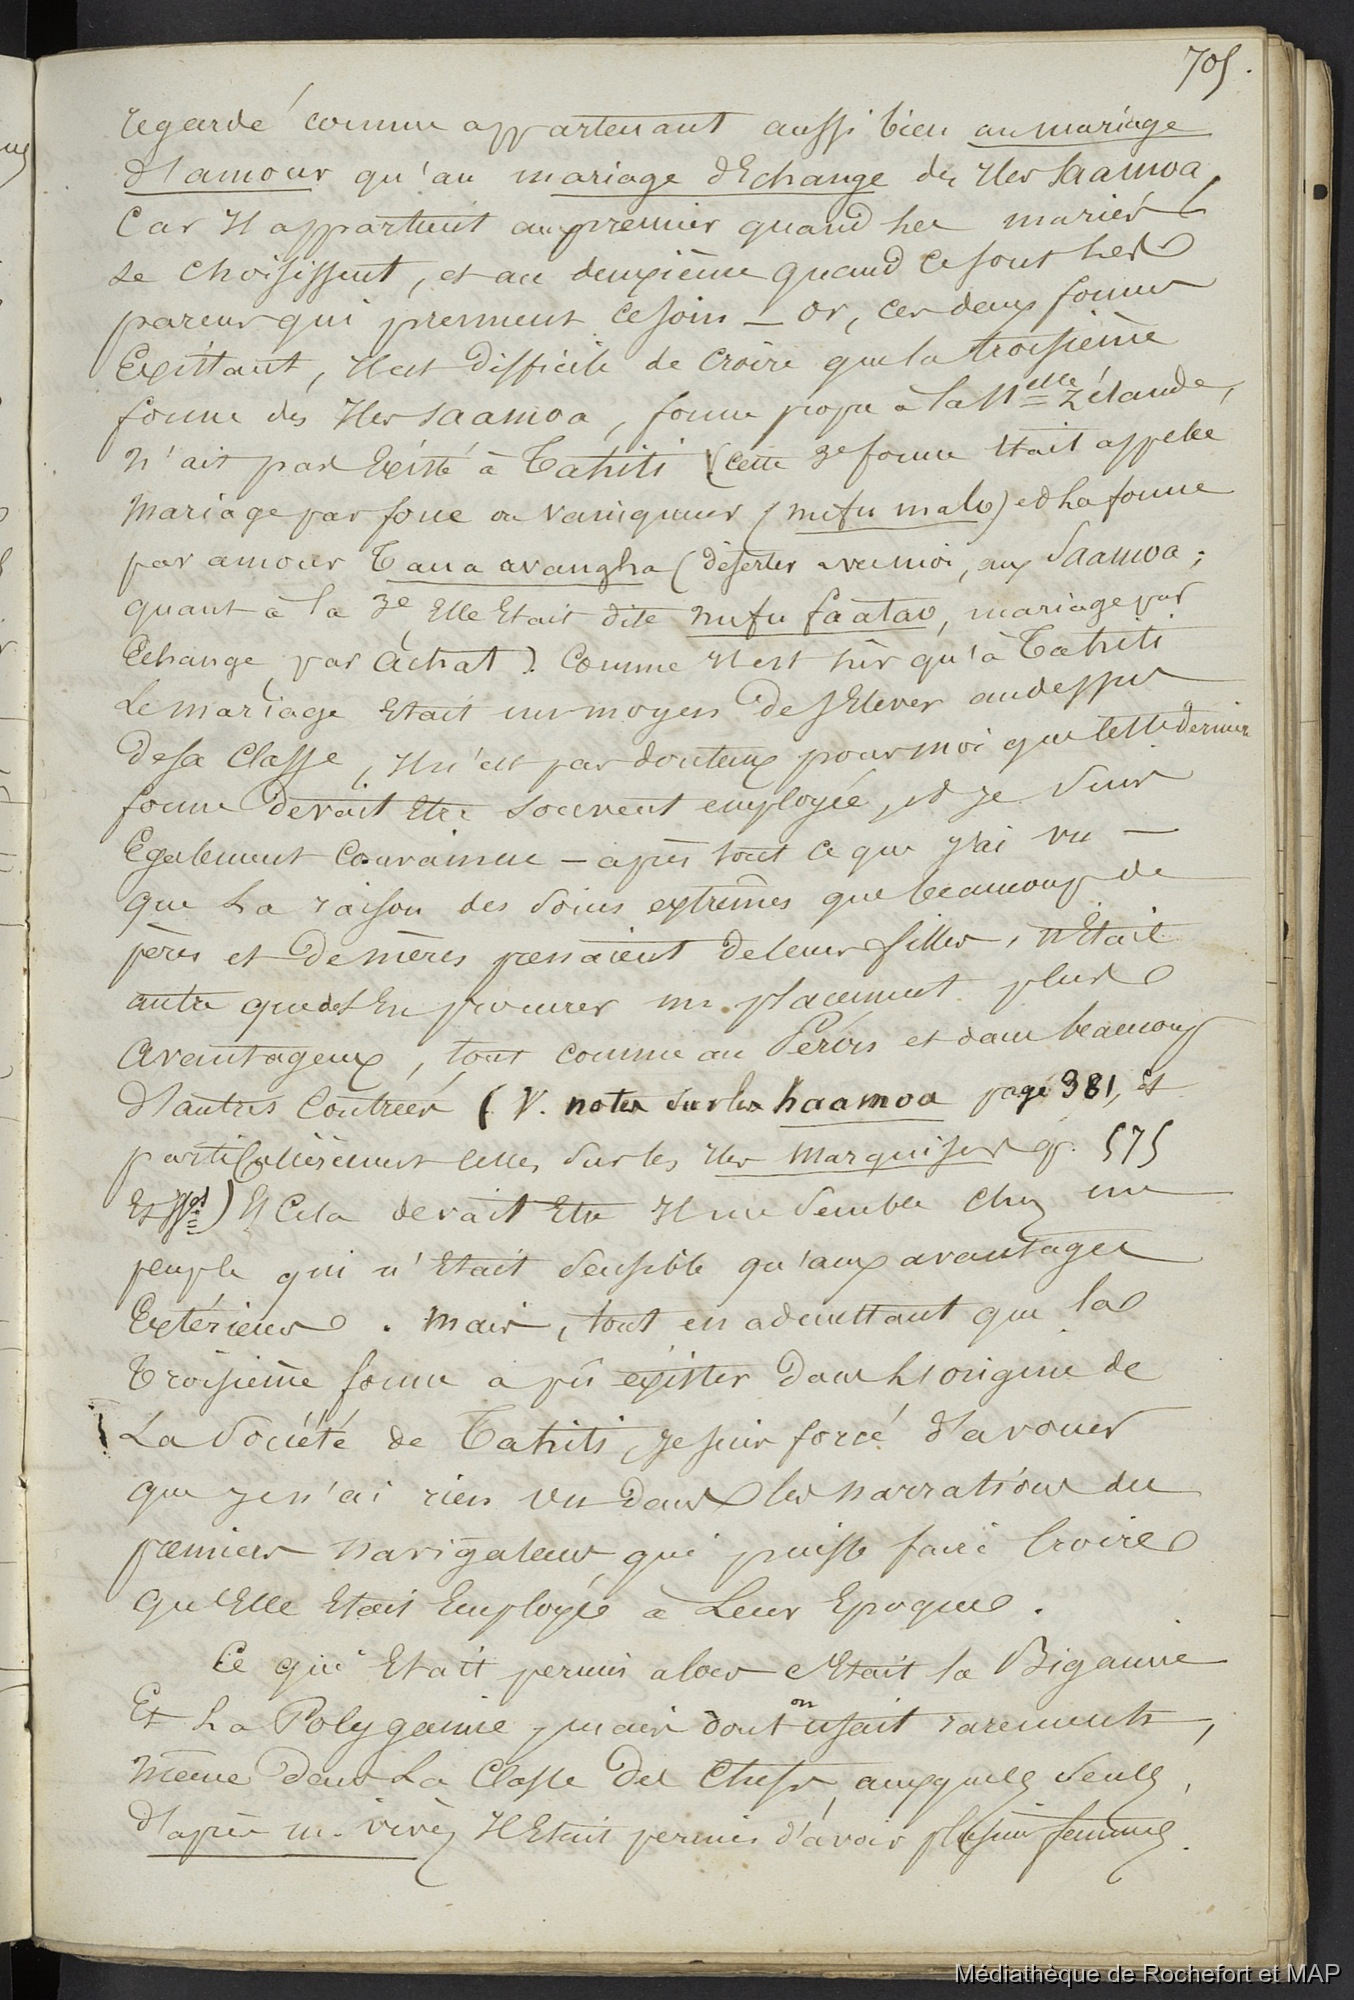 705.
regardé comme appartenant aussi bien au mariage
d'amour qu'au mariage d'Echange des Iles Saamoa
Car Il appartient au premier quand les mariés
se choisissent, et au deuxième quand ce sont les
parens qui prennent ce soin — Or, ces deux formes
Existant, Il est difficile de croire que la troisième
forme des Iles Saamoa, forme propre à la Nelle Zélande,
n'ait pas Existé à Tahiti (cette 3e forme était appelée
mariage par force ou vainqueur (nufu malo) et la forme
par amour Taua avangha (déserter avec moi, aux Saamoa;
quant à la 3e, Elle Etait dite nufu faatao, mariage par
Echange, par achat). Comme Il est sûr qu'à Tahiti
Le mariage Etait un moyen de s'Elever audessus
de sa Classe, Il n'est pas douteux pour moi que cette dernière
forme devait Etre souvent employée, et je suis
Egalement Convaincu — après tout ce que j'ai vu —
que La raison des soins extrêmes que beaucoup de
pères et de mères prenaient de leurs filles, n'Etait
autre que de s'En procurer un placement plus
avantageux, tout comme au Pérou et dans beaucoup
d'autres Contrées (V. notes sur les haamoa page 381, et
particulièrement celles sur les Iles Marquises p. 575
Et ) Et Cela devait Etre Il me semble chez un
peuple qui n'Etait sensible qu'aux avantages
Extérieurs. Mais, tout en admettant que la
Troisième forme a pû exister dans L'origine de
La Société de Tahiti, je suis forcé d'avouer
que je n'ai rien vu dans les narrations des
premiers navigateurs qui puisse faire Croire
qu'Elle Etait Employée à Leur Epoque.
Ce qui Etait permis alors c'Etait la Bigamie
Et La Polygamie, mais dont on usait rarement,
même dans La Classe des Chefs, auxquels seuls,
d'après M. vivès Il Etait permis d'avoir plusieurs femmes.
Médiathèque de Rochefort et MAP